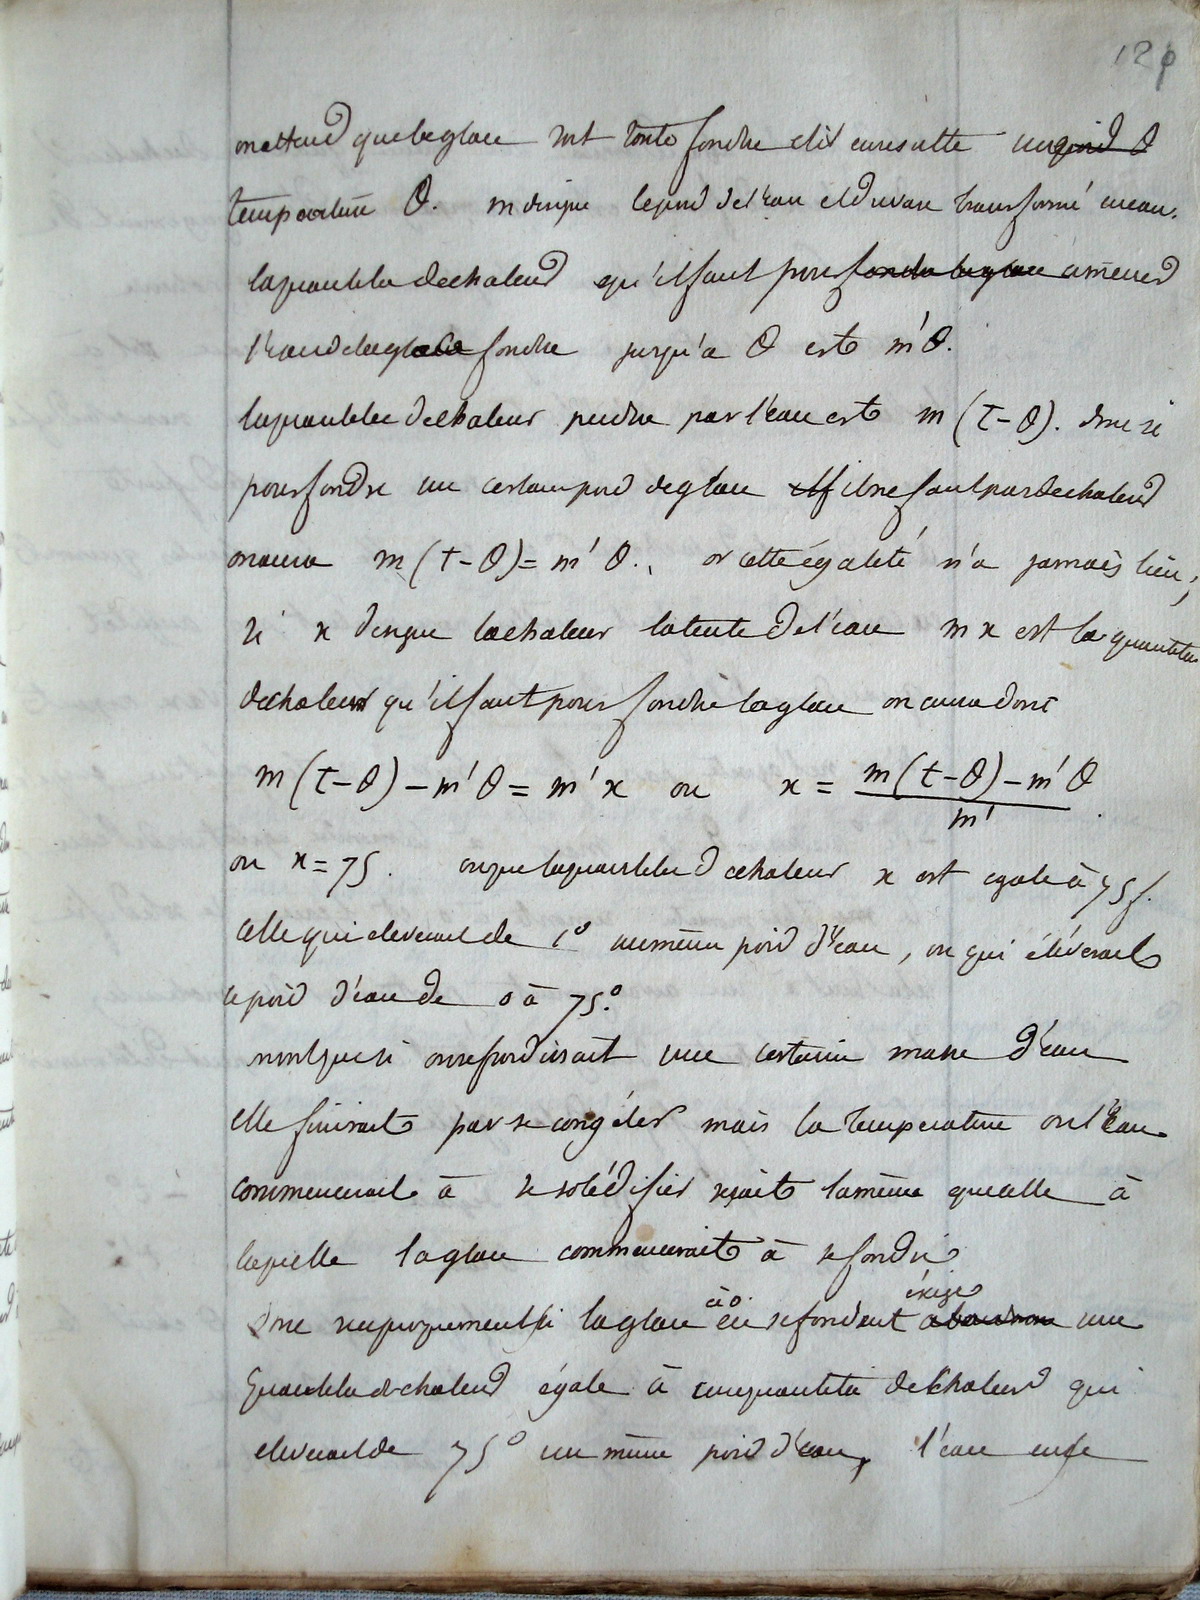 129
on attend que la glace soit toute fondue et il en resulte un poid θ
température θ. m désigne le poid de l'eau et du vase transformé en eau.
la quantité de chaleur qu'il faut pour fondre la glace amener
l'eau de la glace fondue jusqu'à θ est m'θ.
la quantité de chaleur perdue par l'eau est m(t-θ). donc si
pour fondre un certain poid de glace il ne faut pas de chaleur
on aura m(t-θ)=m'θ. or cette égalité n'a jamais lieu;
si x désigne la chaleur latente de l'eau mx est la quantité
de chaleur qu'il faut pour fondre la glace on aura donc
m(t-θ)-m'θ = m'x ou x = m(t-θ)-m'θ / m'
ou x=75. ou que la quantité de chaleur x est egale à 75 f.
celle qui eleverait de 1° un même poid d'eau, ou qui élèverait
ce poid d'eau de 0 à 75°.
si on refroidissait une certaine masse d'eau
elle finirait par se congéler mais la température où l'eau
commencerait à se solidifier serait la même que celle à
laquelle la glace commencerait à se fondre
donc reciproquement si la glace à 0. en se fondant exige abandonne une
quantité de chaleur égale à quantité de chaleur qui
eleverait de 75° un même poid d'eau, l'eau en se